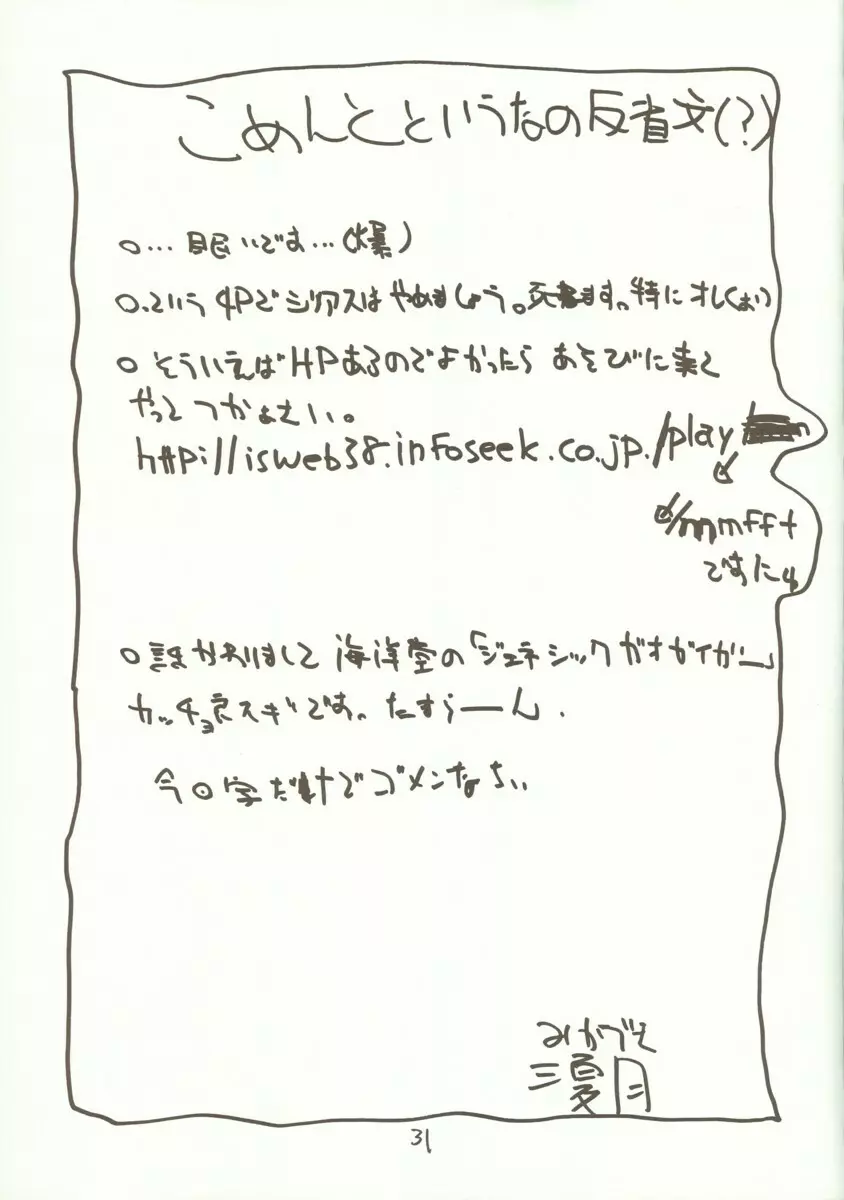 こめんとというなの反省文(?)
○…眠いです…(爆)
○.という4Pでジアスはやめましょう。死ねます。特にオレ(おい)
○そういえばHPあるのでよかったらあそびに来て
やってつかぁさい。
http://isweb38.infoseek.co.jp./play
/mmfft
ですにゅ
○誰か 海洋堂の「ジェネシックガオガイガー」
カッチョ良スギです。たすうーん.
今回字だけでゴメンなさい
みかづき
三夏月
31